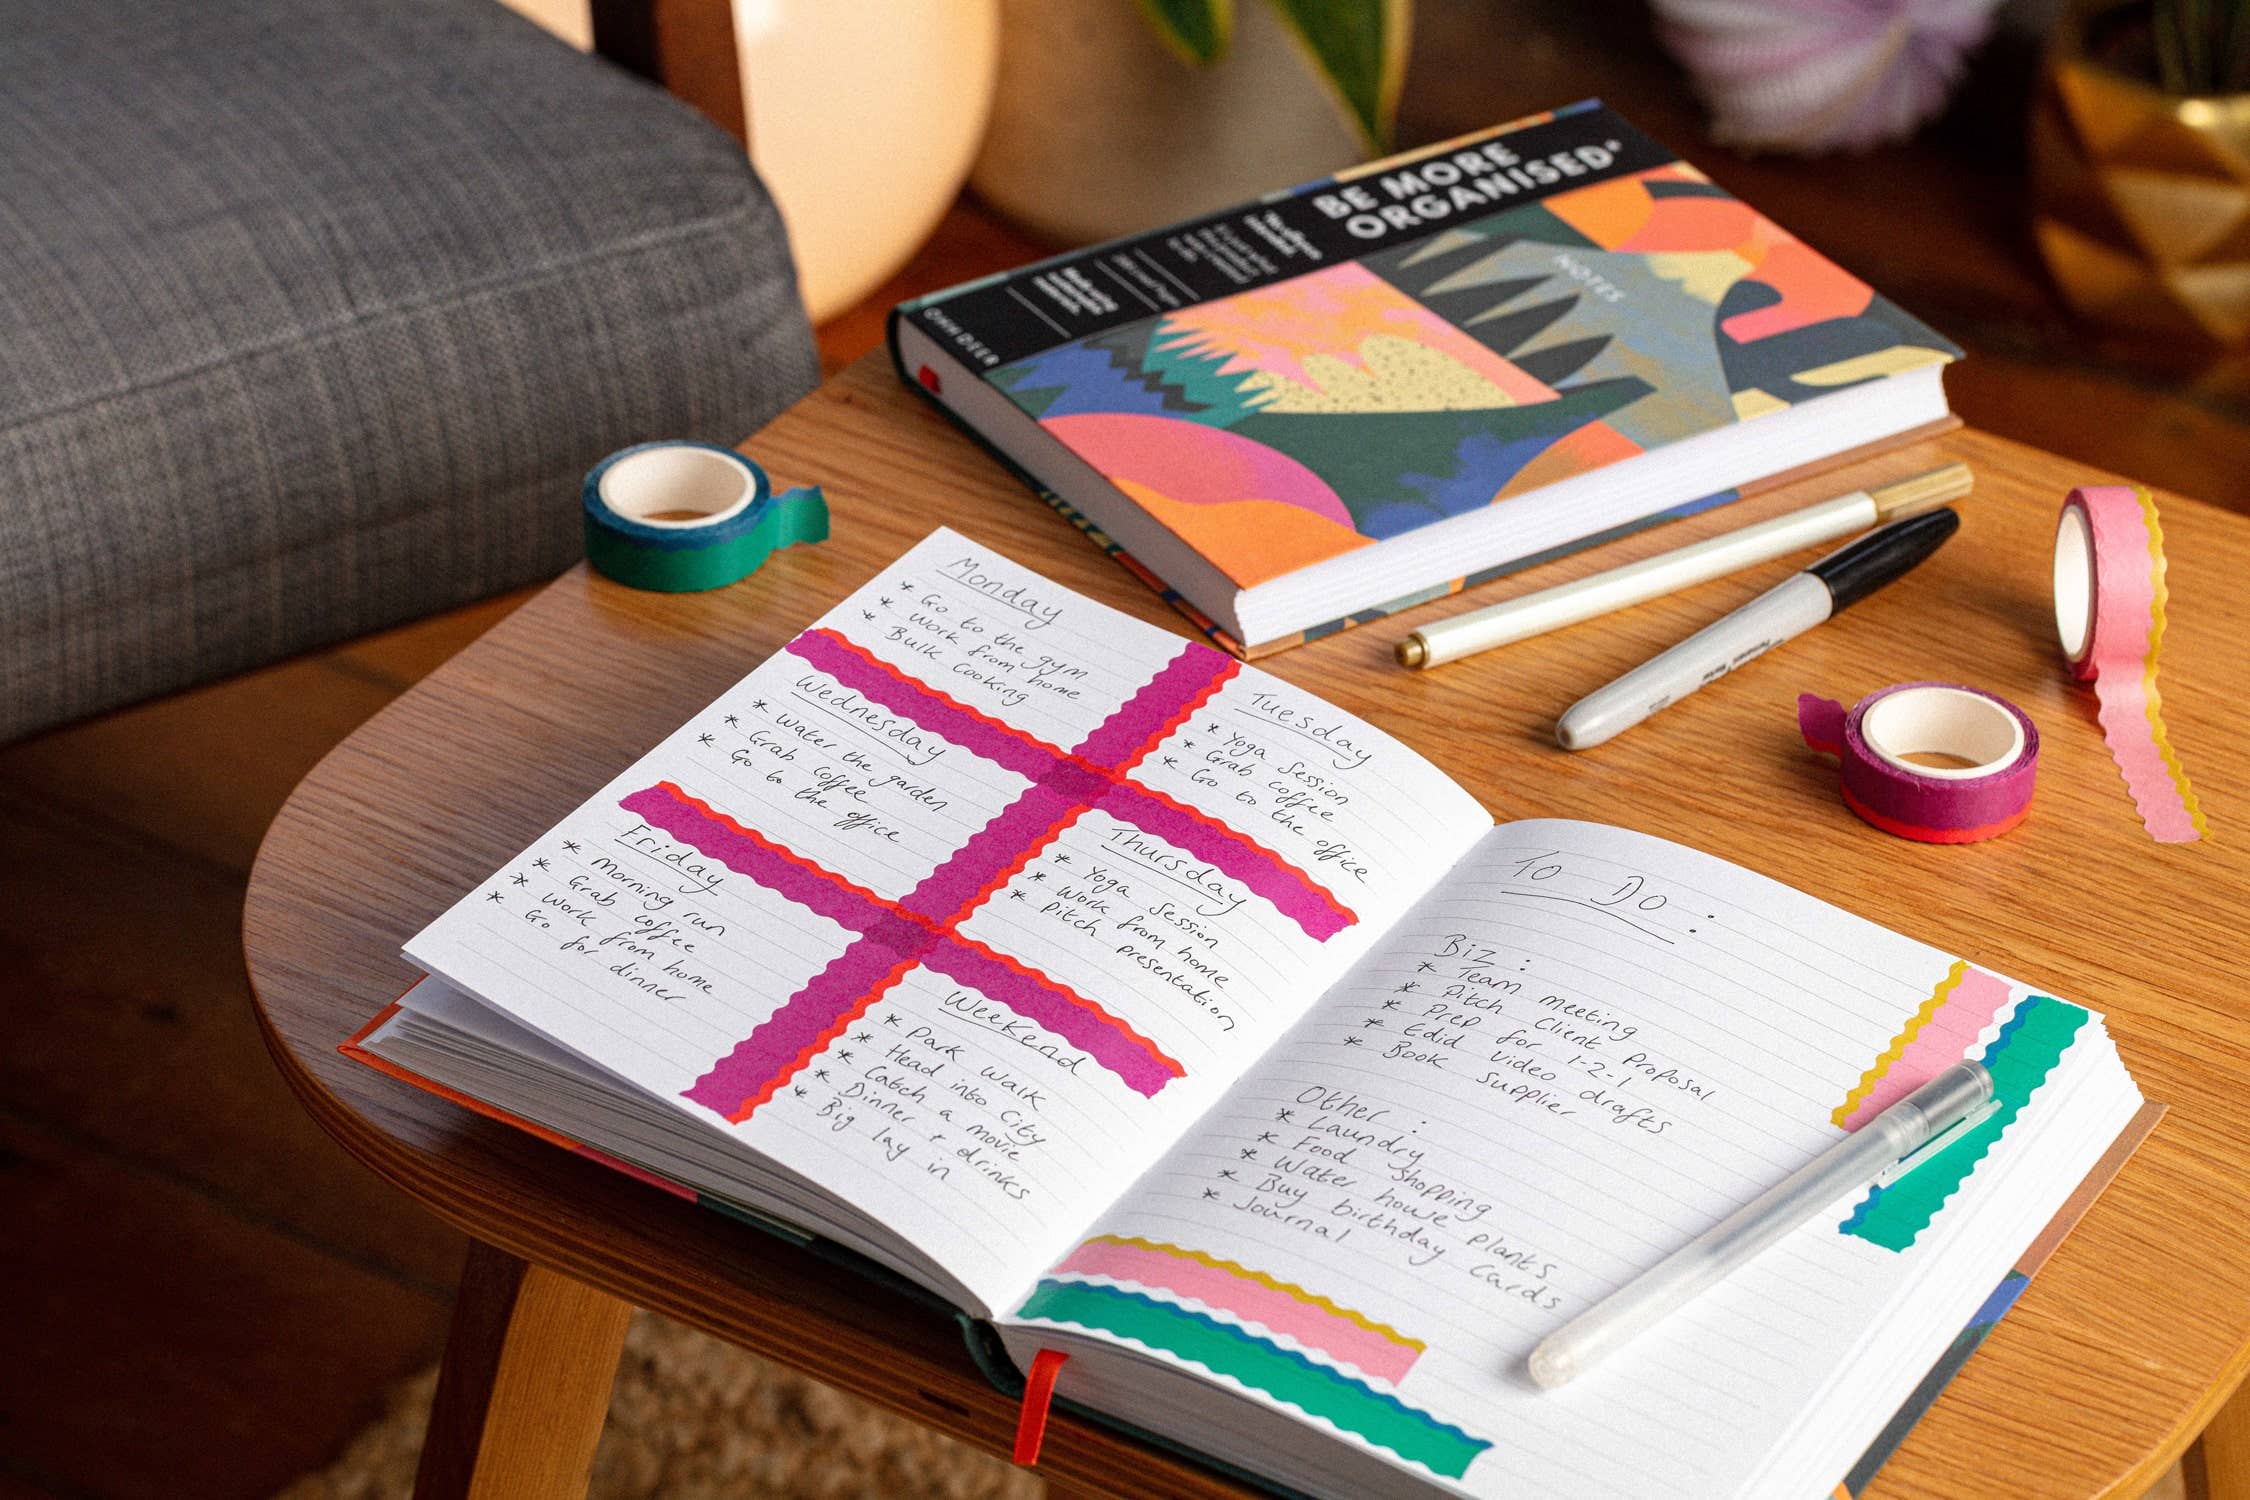 BE MORE
ORGANISED
NOTES
OHH DEER
Monday
* Go to the gym
* Work from home
* Bulk cooking
Tuesday
* Yoga session
* Grab coffee
* Go to the office
Wednesday
* Water the garden
* Grab coffee
* Go to the office
Thursday
* Yoga session
* Work from home
* Pitch presentation
Friday
* Morning run
* Grab coffee
* Work from home
* Go for dinner
Weekend
* Park walk
* Head into City
* Catch a movie
* Dinner + drinks
* Big lay in
To Do :
Biz :
* Team meeting
* Pitch Client Proposal
* Prep for 1-2-1
* Edid video drafts
* Book supplier
Other :
* Laundry
* Food shopping
* Water house plants
* Buy birthday cards
* Journal